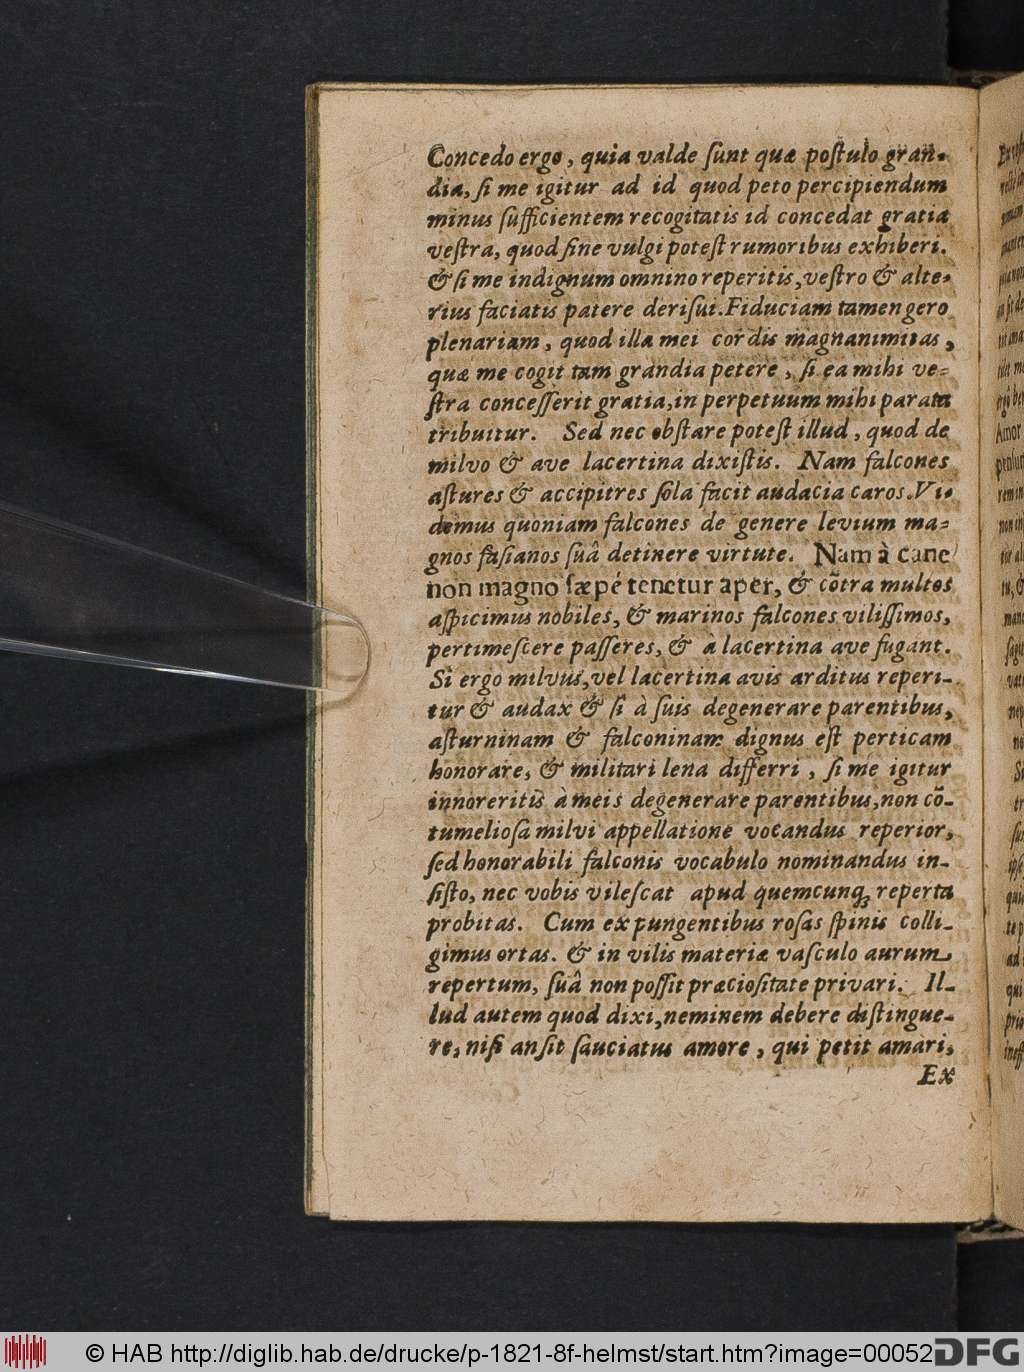 Concedo ergo, quia valde ſunt quæ poſtulo gran-
dia, ſi me igitur ad id quod peto percipiendum
minus ſufficientem recogitatis id concedat gratia
veſtra, quod ſine vulgi poteſt rumoribus exhiberi.
& ſi me indignum omnino reperitis, veſtro & alte-
rius faciatis patere deriſui. Fiduciam tamen gero
plenariam, quod illa mei cordis magnanimitas,
quæ me cogit tam grandia petere, ſi ea mihi ve-
ſtra conceſſerit gratia, in perpetuum mihi parata
tribuitur. Sed nec obſtare poteſt illud, quod de
milvo & ave lacertina dixiſtis. Nam falcones
aſtures & accipitres ſola facit audacia caros. Vi-
demus quoniam falcones de genere levium ma-
gnos faſianos ſuâ detinere virtute. Nam à cane
non magno ſæpé tenetur aper, & cõtra multos
aſpicimus nobiles, & marinos falcones viliſſimos,
pertimeſcere paſſeres, & à lacertina ave fugant.
Si ergo milvus, vel lacertina avis arditus reperi-
tur & audax & ſi à ſuis degenerare parentibus,
aſturninam & falconinam dignus eſt perticam
honorare, & militari lena differri, ſi me igitur
innoreritis à meis degenerare parentibus, non cõ-
tumelioſa milvi appellatione vocandus reperior,
ſed honorabili falconis vocabulo nominandus in-
ſiſto, nec vobis vileſcat apud quemcunq; reperta
probitas. Cum ex pungentibus roſas ſpinis colli-
gimus ortas. & in vilis materiæ vaſculo aurum
repertum, ſuâ non poſſit præcioſitate privari. Il-
lud autem quod dixi, neminem debere diſtingue-
re, niſi an ſit ſauciatus amore, qui petit amari,
Ex
© HAB http://diglib.hab.de/drucke/p-1821-8f-helmst/start.htm?image=00052
DFG